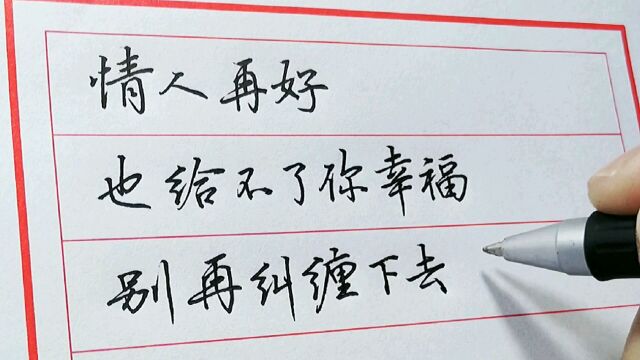 情人再好
也给不了你幸福
别再纠缠下去